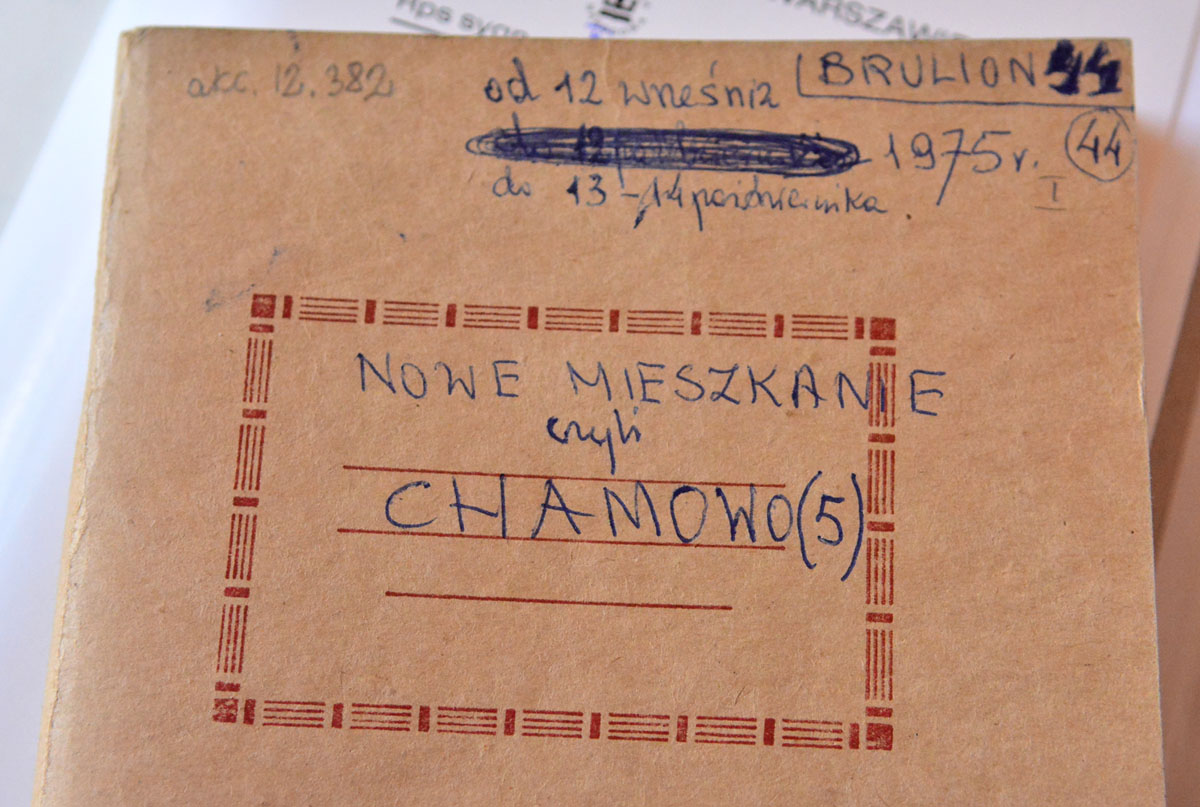 Rps sygn
WARSZAWIE
akc. 12.382
od 12 września
BRULION 44
1975 r.
44
I
do 13 – 14 października.
NOWE MIESZKANIE
czyli
CHAMOWO (5)